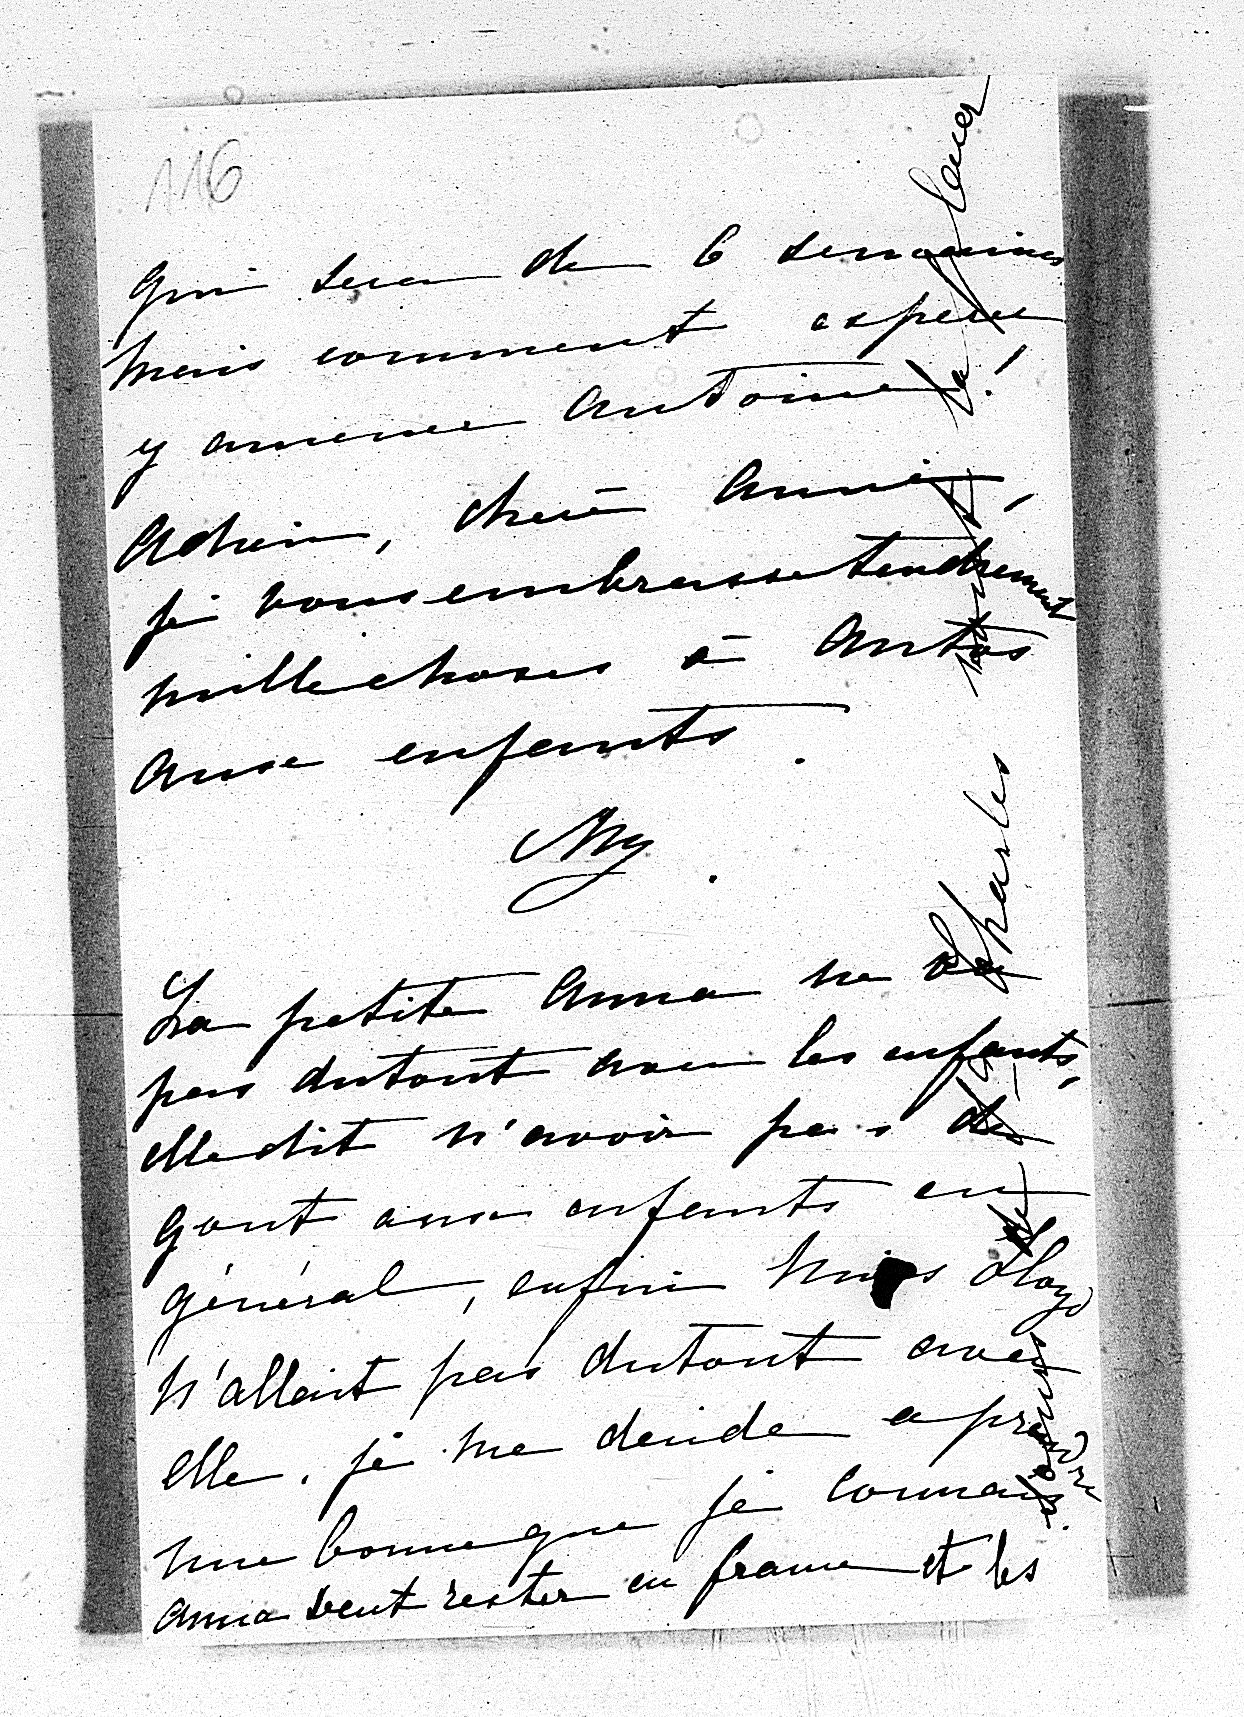 116
qui sera de 6 semaines
mais comment espérer
y amener Antoine !
Adrien, chère Annie,
je vous embrasse tendrement
mille choses à Antos
aux enfants.
My.
La petite Anna ne va
pas dutout avec les enfants,
elle dit n'avoir pas de
gout aux enfants en
général, enfin Miss Lloyd
n'allait pas dutout avec
elle. je me decide a prendre
une bonne que je connais.
Anna veut rester en france et les
de Charles
veut la louer